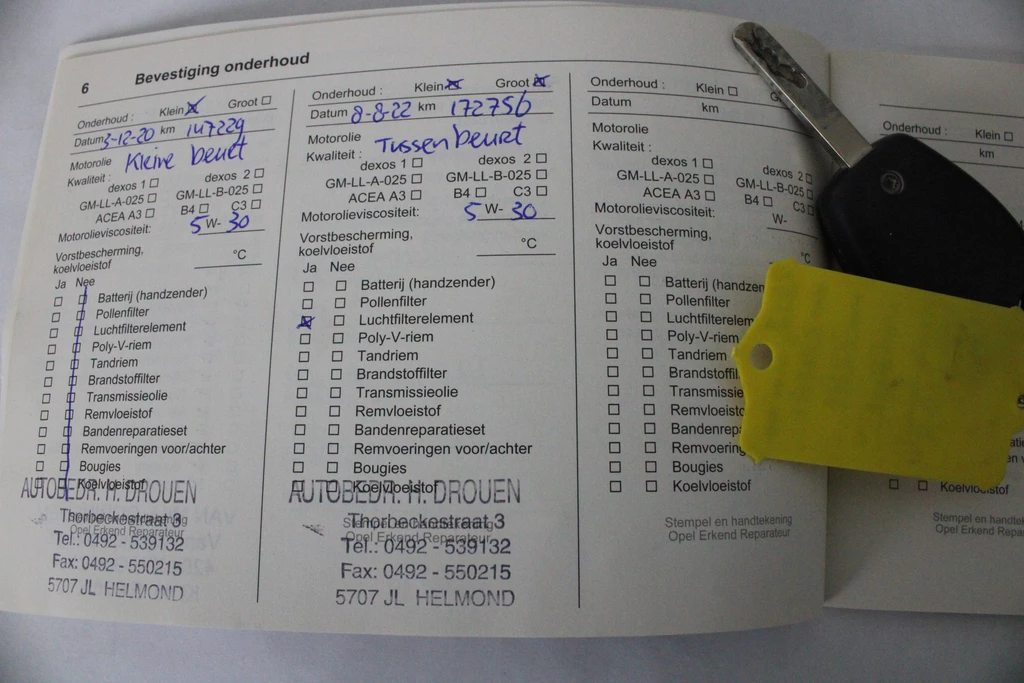 6 Bevestiging onderhoud
Onderhoud : Klein Groot
Datum 3-12-20 km 147229
Motorolie Kleine beurt
Kwaliteit :
dexos 1 dexos 2
GM-LL-A-025 GM-LL-B-025
ACEA A3 B4 C3
Motorolieviscositeit: 5 W- 30
Vorstbescherming,
koelvloeistof °C
Ja Nee
Batterij (handzender)
Pollenfilter
Luchtfilterelement
Poly-V-riem
Tandriem
Brandstoffilter
Transmissieolie
Remvloeistof
Bandenreparatieset
Remvoeringen voor/achter
Bougies
Koelvloeistof
AUTOBEDR. H. DROUEN
Thorbeckestraat 3
Opel Erkend Reparateur
Tel.: 0492 - 539132
Fax: 0492 - 550215
5707 JL HELMOND
Onderhoud : Klein Groot
Datum 8-8-22 km 172756
Motorolie Tussen beurt
Kwaliteit :
dexos 1 dexos 2
GM-LL-A-025 GM-LL-B-025
ACEA A3 B4 C3
Motorolieviscositeit: 5 W- 30
Vorstbescherming,
koelvloeistof °C
Ja Nee
Batterij (handzender)
Pollenfilter
Luchtfilterelement
Poly-V-riem
Tandriem
Brandstoffilter
Transmissieolie
Remvloeistof
Bandenreparatieset
Remvoeringen voor/achter
Bougies
Koelvloeistof
AUTOBEDR. H. DROUEN
Stempel en handtekening
Thorbeckestraat 3
Opel Erkend Reparateur
Tel.: 0492 - 539132
Fax: 0492 - 550215
5707 JL HELMOND
Onderhoud : Klein G
Datum km
Motorolie
Kwaliteit :
dexos 1 dexos 2
GM-LL-A-025 GM-LL-B-025
ACEA A3 B4 C3
Motorolieviscositeit: W-
Vorstbescherming,
koelvloeistof °C
Ja Nee
Batterij (handzen
Pollenfilter
Luchtfilterelem
Poly-V-riem
Tandriem
Brandstoffil
Transmissie
Remvloeisto
Bandenrepa
Remvoering
Bougies
Koelvloeistof
Stempel en handtekening
Opel Erkend Reparateur
Onderhoud : Klein
km
Koelvloeistof
Stempel en handteke
Opel Erkend Repara